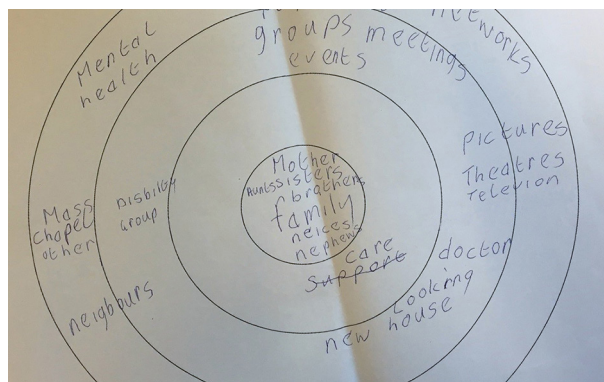 networks
groups meetings
events
Mental
health
Pictures
Theatres
Televion
Mother
Aunts sisters
brothers
family
neices
nephews
Disbility
Group
Mass
Chapel
other
care
support
doctor
Looking
new house
neighbours